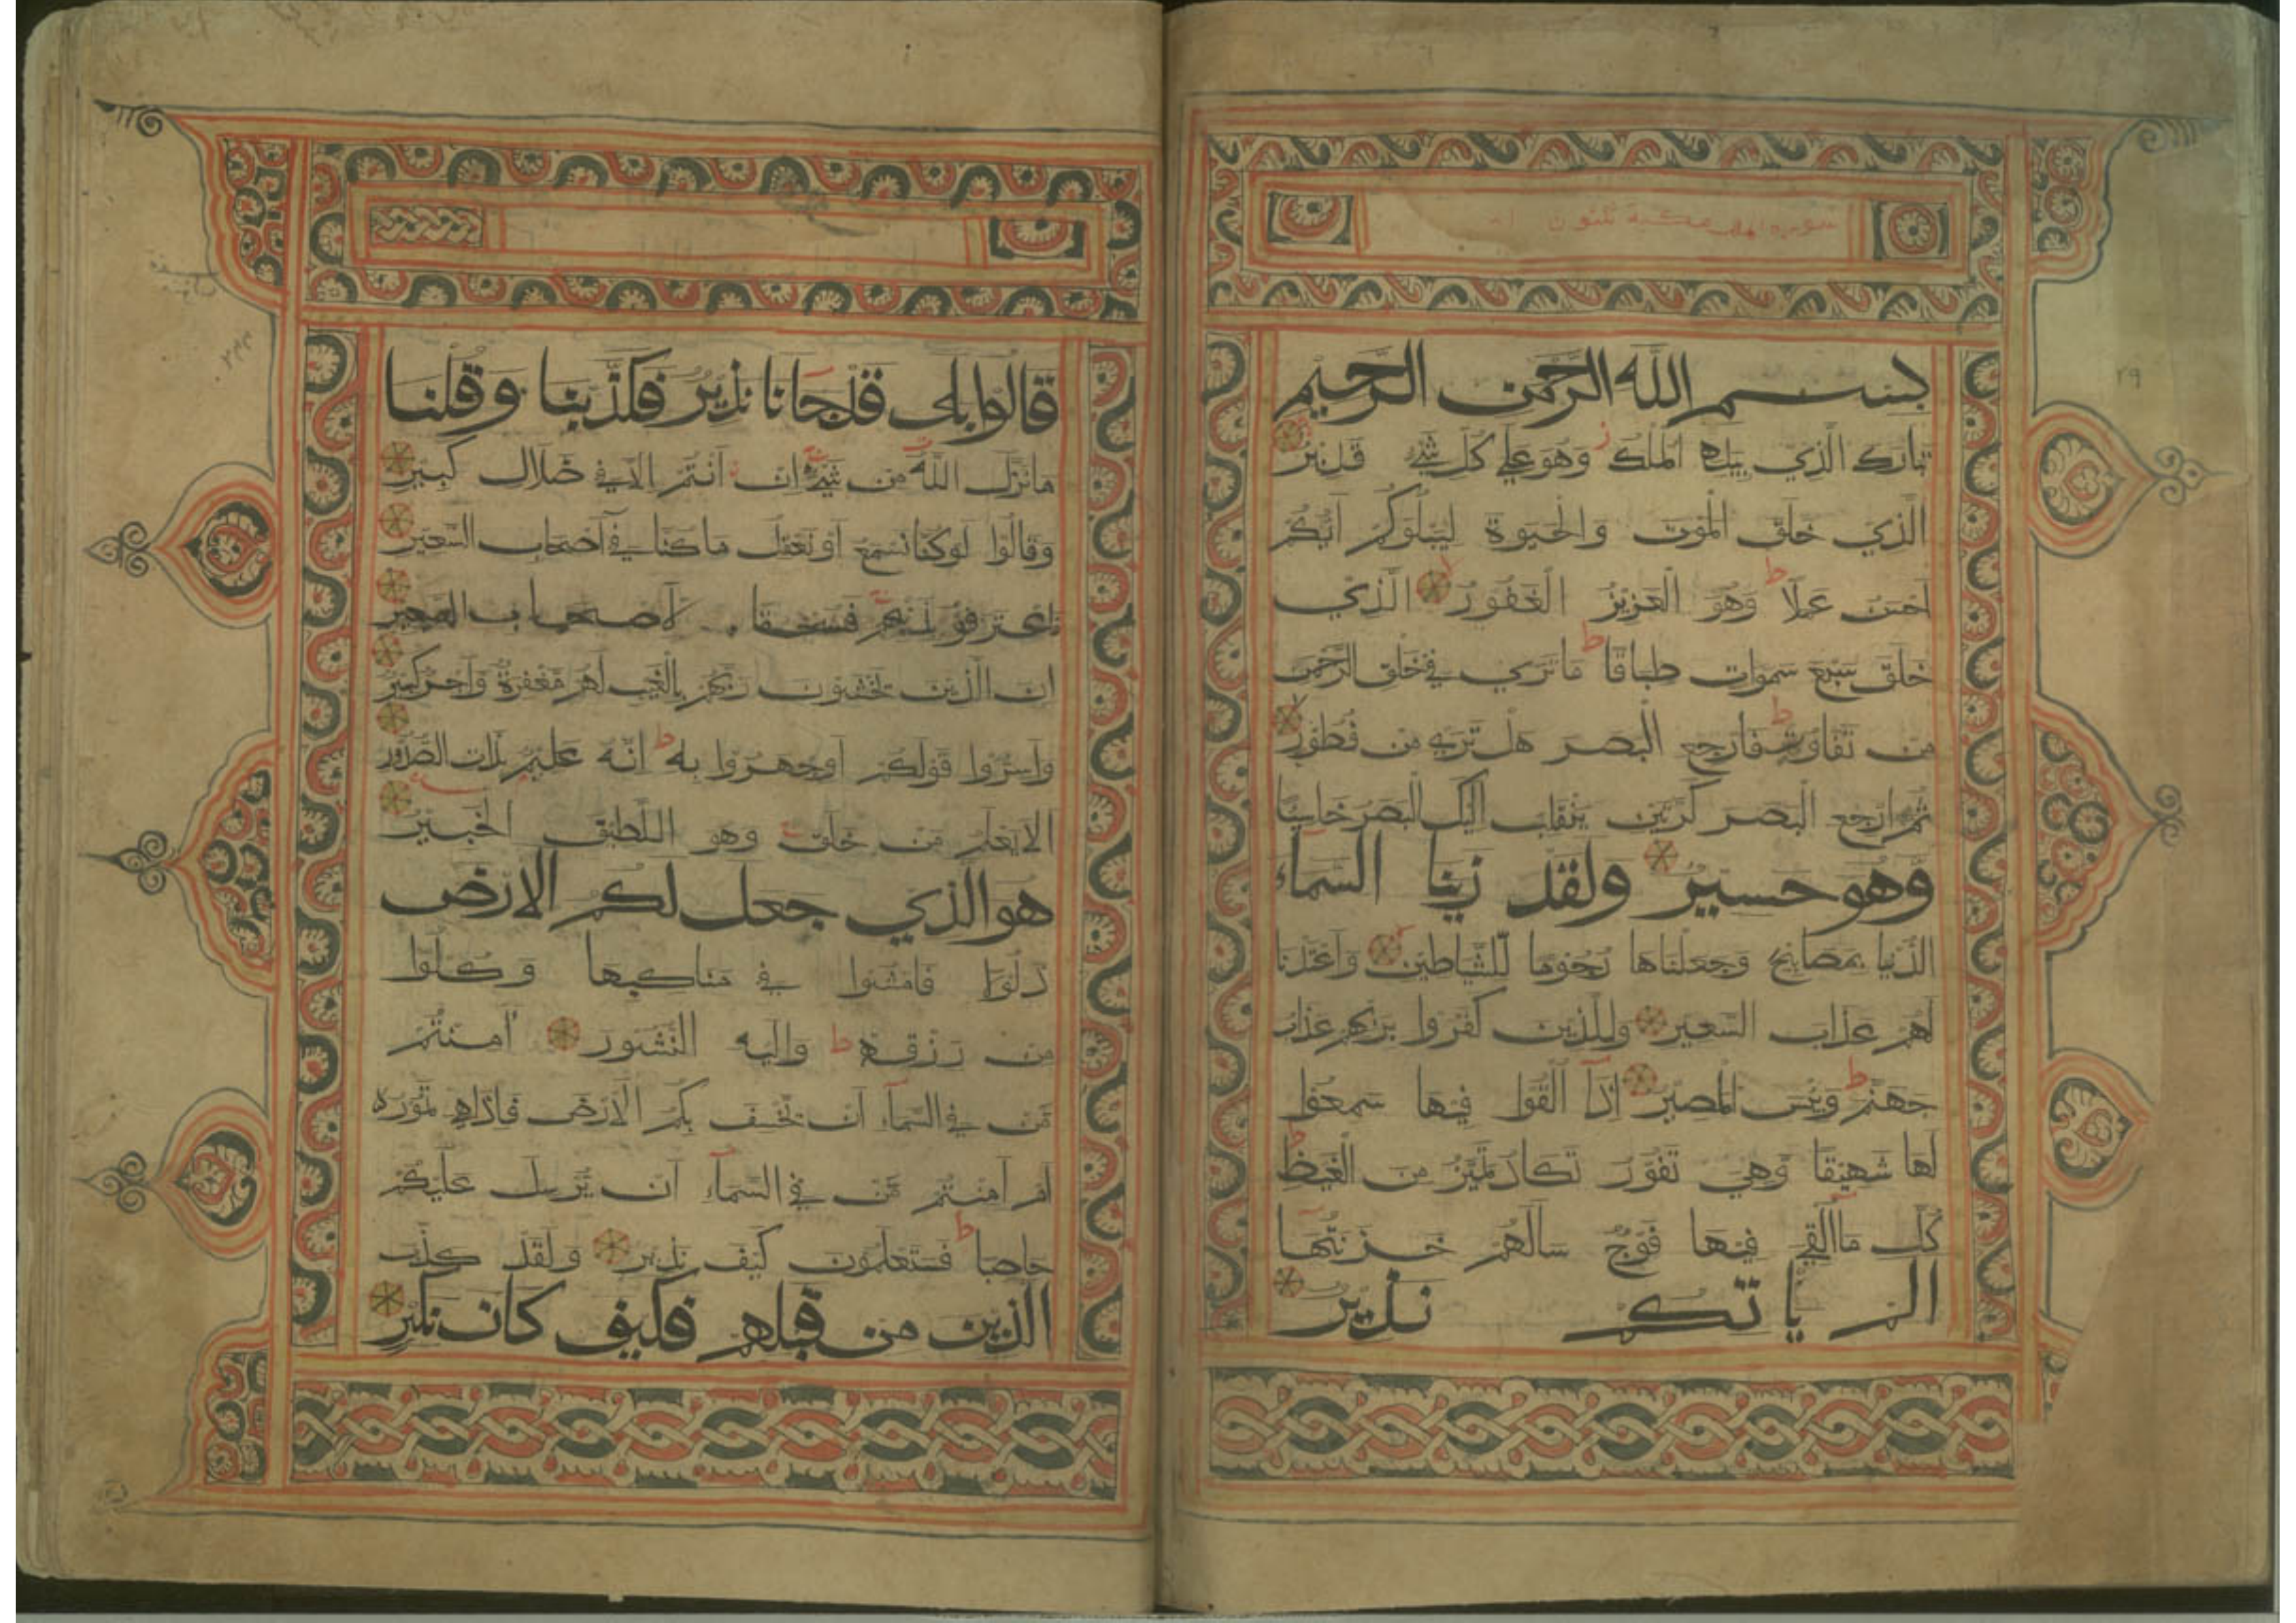 سورة الملك مكية ثلثون
بسم الله الرحمن الرحيم
تبارك الذي بيده الملك وهو على كل شيء قدير
الذي خلق الموت والحيوة ليبلوكم ايكم
احسن عملا ط وهو العزيز الغفور الذي
خلق سبع سموات طباقا ط ما تري في خلق الرحمن
من تفاوت ط فارجع البصر هل تري من فطور
ثم ارجع البصر كرتين ينقلب اليك البصر خاسيا
وهو حسير ولقد زينا السماء
الدنيا بمصابيح وجعلناها رجوما للشياطين واعتدنا
لهم عذاب السعير وللذين كفروا بربهم عذاب
جهنم ط وبئس المصير اذا القوا فيها سمعوا
لها شهيقا وهي تفور تكاد تميز من الغيظ ط
كل ما القي فيها فوج سالهم خزنتها
الم ياتكم نذير
قالوا بلى قد جانا نذير فكذبنا وقلنا
ما نزل الله من شيء ان انتم الا في ضلال كبير
وقالوا لو كنا نسمع او نعقل ما كنا في اصحاب السعير
فسحقا لاصحاب السعير
ان الذين يخشون ربهم بالغيب لهم مغفرة واجر كبير
واسروا قولكم او اجهروا به ط انه عليم بذات الصدور
الا يعلم من خلق وهو اللطيف الخبير
هو الذي جعل لكم الارض
ذلولا فامشوا في مناكبها وكلوا
من رزقه ط واليه النشور امنتم
من في السماء ان يخسف بكم الارض فاذا هي تمور
ام امنتم من في السماء ان يرسل عليكم
حاصبا ط فستعلمون كيف نذير ولقد كذب
الذين من قبلهم فكيف كان نكير